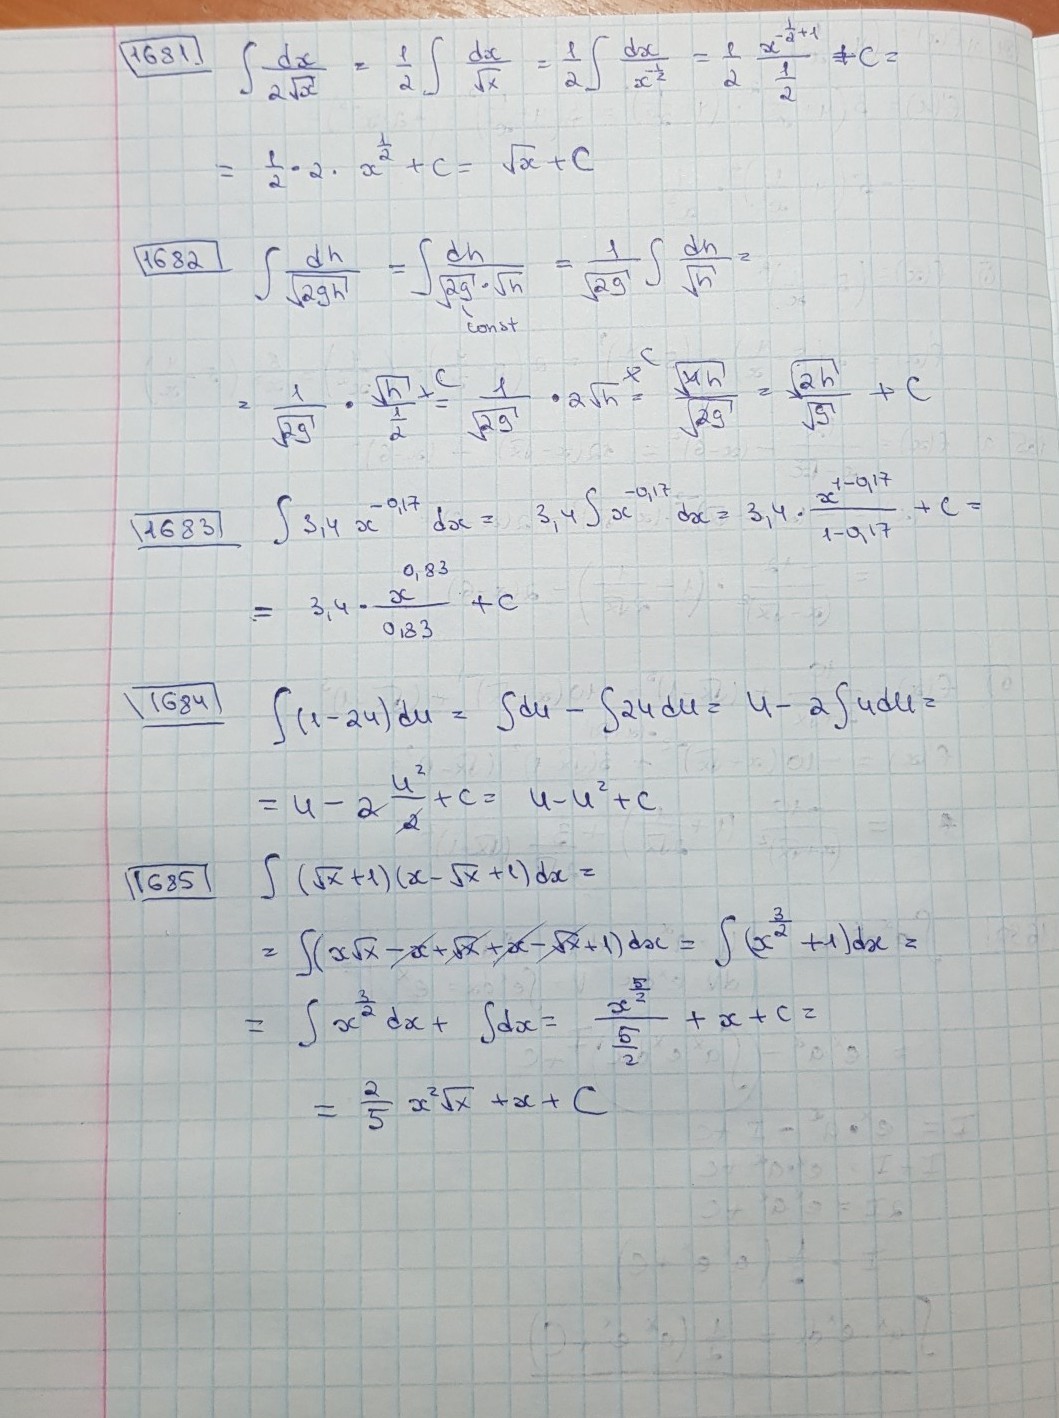 1681 ∫ dx/(2√x) = 1/2 ∫ dx/√x = 1/2 ∫ dx/x^(-1/2) = 1/2 x^(-1/2+1)/(1/2) + C =
= 1/2 · 2 · x^(1/2) + C = √x + C
1682 ∫ dh/√(2gh) = ∫ dh/(√(2g) · √h) = 1/√(2g) ∫ dh/√h =
const
= 1/√(2g) · √h/(1/2) + C = 1/√(2g) · 2√h + C = √(4h)/√(2g) = √(2h)/√g + C
1683 ∫ 3,4 x^(-0,17) dx = 3,4 ∫ x^(-0,17) dx = 3,4 · x^(1-0,17)/(1-0,17) + C =
= 3,4 · x^(0,83)/0,83 + C
1684 ∫ (1-2u) du = ∫ du - ∫ 2u du = u - 2 ∫ u du =
= u - 2 u²/2 + C = u - u² + C
1685 ∫ (√x + 1)(x - √x + 1) dx =
= ∫ (x√x - x + √x + x - √x + 1) dx = ∫ (x^(3/2) + 1) dx =
= ∫ x^(3/2) dx + ∫ dx = x^(5/2)/(5/2) + x + C =
= 2/5 x²√x + x + C